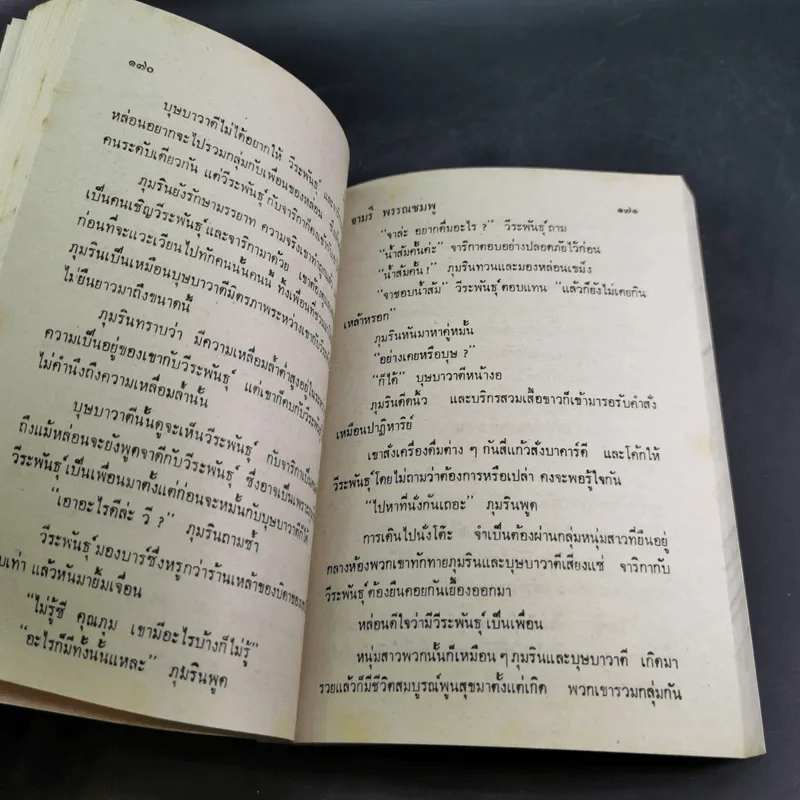 ๑๗๐
บุษบาวาตีไม่ได้อยากให้ วีระพันธุ์ และ
หล่อนอยากจะไปรวมกลุ่มกับเพื่อนของหล่อน
คนระดับเดียวกัน แต่วีระพันธุ์ กับจาริกาก็คง
ภุมรินยังรักษามรรยาท ความจริงเขาทำ
เป็นคนเชิญวีระพันธุ์และจาริกามาด้วย เขาต้อง
ก่อนที่จะแวะเวียนไปทักคนนั้นคนนี้ ทั้งเพื่อนที่
ภุมรินเป็นเหมือนบุษบาวาตีมิตรภาพระหว่างเขากับวีระพันธุ์
ไม่ยืนยาวมาถึงขนาดนี้
ภุมรินทราบว่า มีความเหลื่อมล้ำต่ำสูงอยู่ใน
ความเป็นอยู่ของเขากับวีระพันธุ์ แต่เขาก็คบกับวีระพันธุ์
ไม่คำนึงถึงความเหลื่อมล้ำนั้น
บุษบาวาตีนั้นดูจะเห็นวีระพันธุ์ กับจาริกาเป็น
ถึงแม้หล่อนจะยังพูดจาดีกับวีระพันธุ์ ซึ่งอาจเป็นเพราะ
วีระพันธุ์เป็นเพื่อนมาตั้งแต่ก่อนจะหมั้นกับบุษบาวาตีก็ได้
"เอาอะไรดีล่ะ วี ?" ภุมรินถามซ้ำ
วีระพันธุ์มองบาร์ซึ่งหรูกว่าร้านเหล้าของบิดาของ
เท่า แล้วหันมายิ้มเจื่อน
"ไม่รู้ซี คุณภุม เขามีอะไรบ้างก็ไม่รู้"
"อะไรก็มีทั้งนั้นแหละ" ภุมรินพูด
จามรี พรรณชมพู ๑๗๑
"จาล่ะ อยากดื่มอะไร ?" วีระพันธุ์ถาม
"น้ำส้มคั้นค่ะ" จาริกาตอบอย่างปลอดภัยไว้ก่อน
"น้ำส้มคั้น !" ภุมรินทวนและมองหล่อนเขม็ง
"จาชอบน้ำส้ม" วีระพันธุ์ตอบแทน "แล้วก็ยังไม่เคยกิน
เหล้าหรอก"
ภุมรินหันมาหาคู่หมั้น
"อย่างเคยหรือบุษ ?"
"ก็ได้" บุษบาวาตีหน้างอ
ภุมรินดีดนิ้ว และบริกรสวมเสื้อขาวก็เข้ามารอรับคำสั่ง
เหมือนปาฏิหาริย์
เขาสั่งเครื่องดื่มต่าง ๆ กันสี่แก้วสั่งบาคาร์ดี และโค้กให้
วีระพันธุ์โดยไม่ถามว่าต้องการหรือเปล่า คงจะพอรู้ใจกัน
"ไปหาที่นั่งกันเถอะ" ภุมรินพูด
การเดินไปนั่งโต๊ะ จำเป็นต้องผ่านกลุ่มหนุ่มสาวที่ยืนอยู่
กลางห้องพวกเขาทักทายภุมรินและบุษบาวาตีเสียงแซ่ จาริกากับ
วีระพันธุ์ต้องยืนคอยกันเยื้องออกมา
หล่อนดีใจว่ามีวีระพันธุ์เป็นเพื่อน
หนุ่มสาวพวกนั้นก็เหมือน ๆ ภุมรินและบุษบาวาตี เกิดมา
รวยแล้วก็มีชีวิตสมบูรณ์พูนสุขมาตั้งแต่เกิด พวกเขารวมกลุ่มกัน